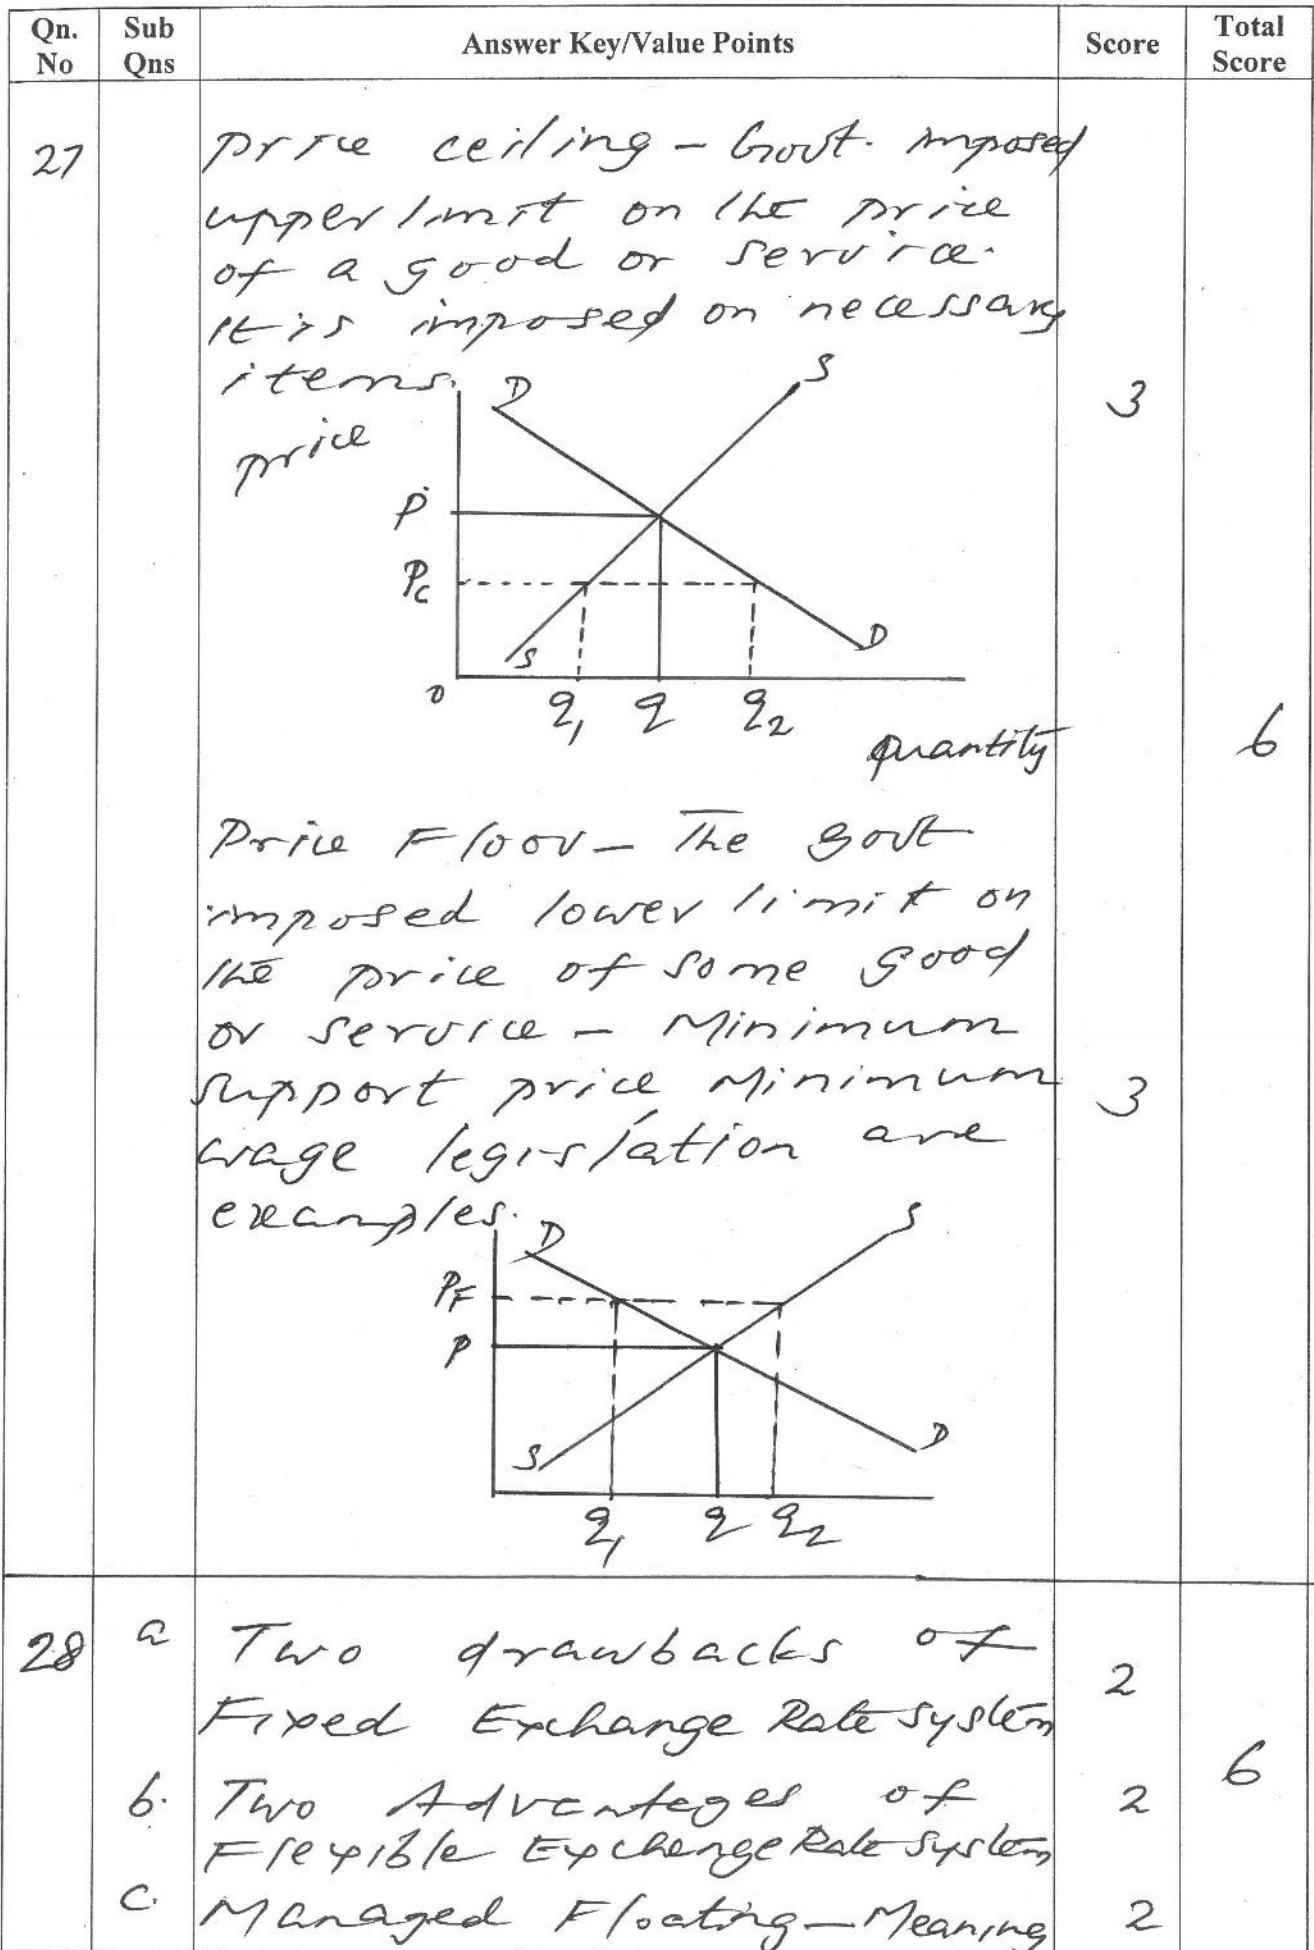 Qn. No Sub Qns Answer Key/Value Points Score Total Score
27 Price ceiling - Govt. imposed
upper limit on the price
of a good or service.
It is imposed on necessary
items.
D S
3
price
P
Pc
S D
0 q1 q q2
quantity
6
Price Floor - The govt
imposed lower limit on
the price of some good
or service - Minimum
support price Minimum
3
wage legislation are
examples.
D S
PF
P
S D
q1 q q2
28 a Two drawbacks of
Fixed Exchange Rate System 2
6
b. Two Advantages of 2
Flexible Exchange Rate System
c. Managed Floating - Meaning 2